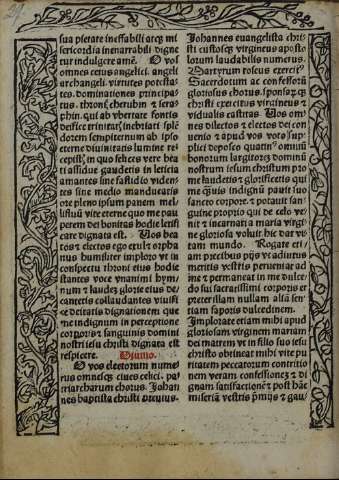 sua pietate ineffabili atq3 mi
sericordia inenarrabili digne
tur indulgere amē. O vos
omnes cetus angelici. angeli
archangeli. virtutes potesta
tes. dominationes principa
tus. throni cherubin & sera
phin. qui ab vbertate fontis
dulcedorem sempiternum ab ipso
eterne diuinitatis lumine re
cepistis. in quo felices vere bea
ti assidue gaudetis in leticia
amantes sine fastidio viden
tes sine medio manducatis
ore pleno ipsum panem mel
lifluū vite eterne quo me pau
perem dei bonitas hodie letifi
care dignata est. Vos bea
tos & electos ego exul & orpha
nus humiliter imploro vt in
conspectu throni eius hodie
stantes voce vnanimi hym
num & laudes glorie eius de
cantetis collaudantes
deitatis dignationem que
me indignum in perceptione
corporis & sanguinis domini
nostri iesu christi dignata est
respicere.
O vos electorum nume
rus omnesq3 ciues celici. pa
triarcharum chorus. Johan
nes baptista christi
Johannes euangelista chri
sti custosq3 virgineus aposto
lorum laudabilis numerus.
Martyrum roseus exercitus
Sacerdotum ac confessorū
gloriosus chorus. sponsarq3
christi exercitus virgineus &
vidualis castitas Vos om
nes dilectos & electos dei con
uenio & apud vos vota sup
plici deposco quatin9 omniū
bonorum largitorem dominū
nostrum iesum christum pro
me laudetis & glorificetis qui
me q̄uis indignū pauit suo
sancto corpore. & potauit san
guine proprio qui de celo ve
nit & incarnari a maria virgi
ne gloriosa voluit hic dar vi
tam mundo. Rogate eti
am precibus pijs vt adiutus
meritis vestris perueniat ad
me & permaneat in me dulce
do sui sacratissimi corporis et
preter illam nullam aliā sen
tiam saporis dulcedinem.
Implorate etiam mihi apud
gloriosam virginem mariam
dei matrem vt in filio suo iesu
christo obtineat mihi vite pu
ritatem peccatorum contritio
nem veram confessionem & di
gnam satisfactionē & post hāc
miseriā vestris p̄mijs & gau